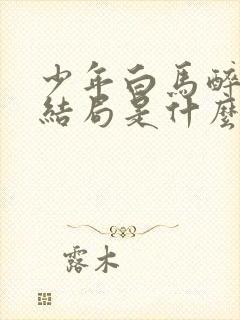 少年白馬醉
結局是什麼
露木